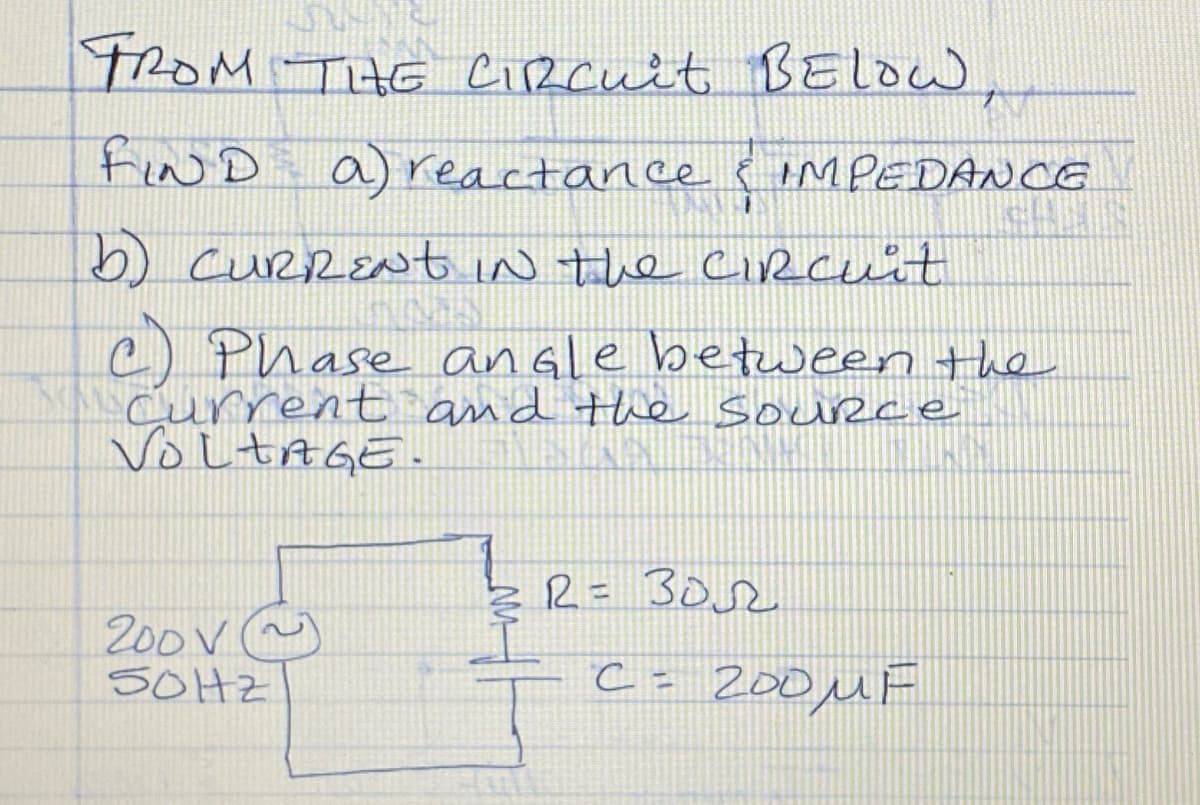 FROM THE CIRCuit BElow,
finD a) reactance & IMPEDANCE
b) CURRENt IN the CIRcuit
c) Phase anGle between the
current and the souRce
VoLtAGE.
R = 30Ω
200 V
50HZ
C = 200 μF